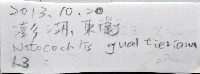 2013.10.20
澎湖, 東衛
Nstocochlis gualtieriana
L3